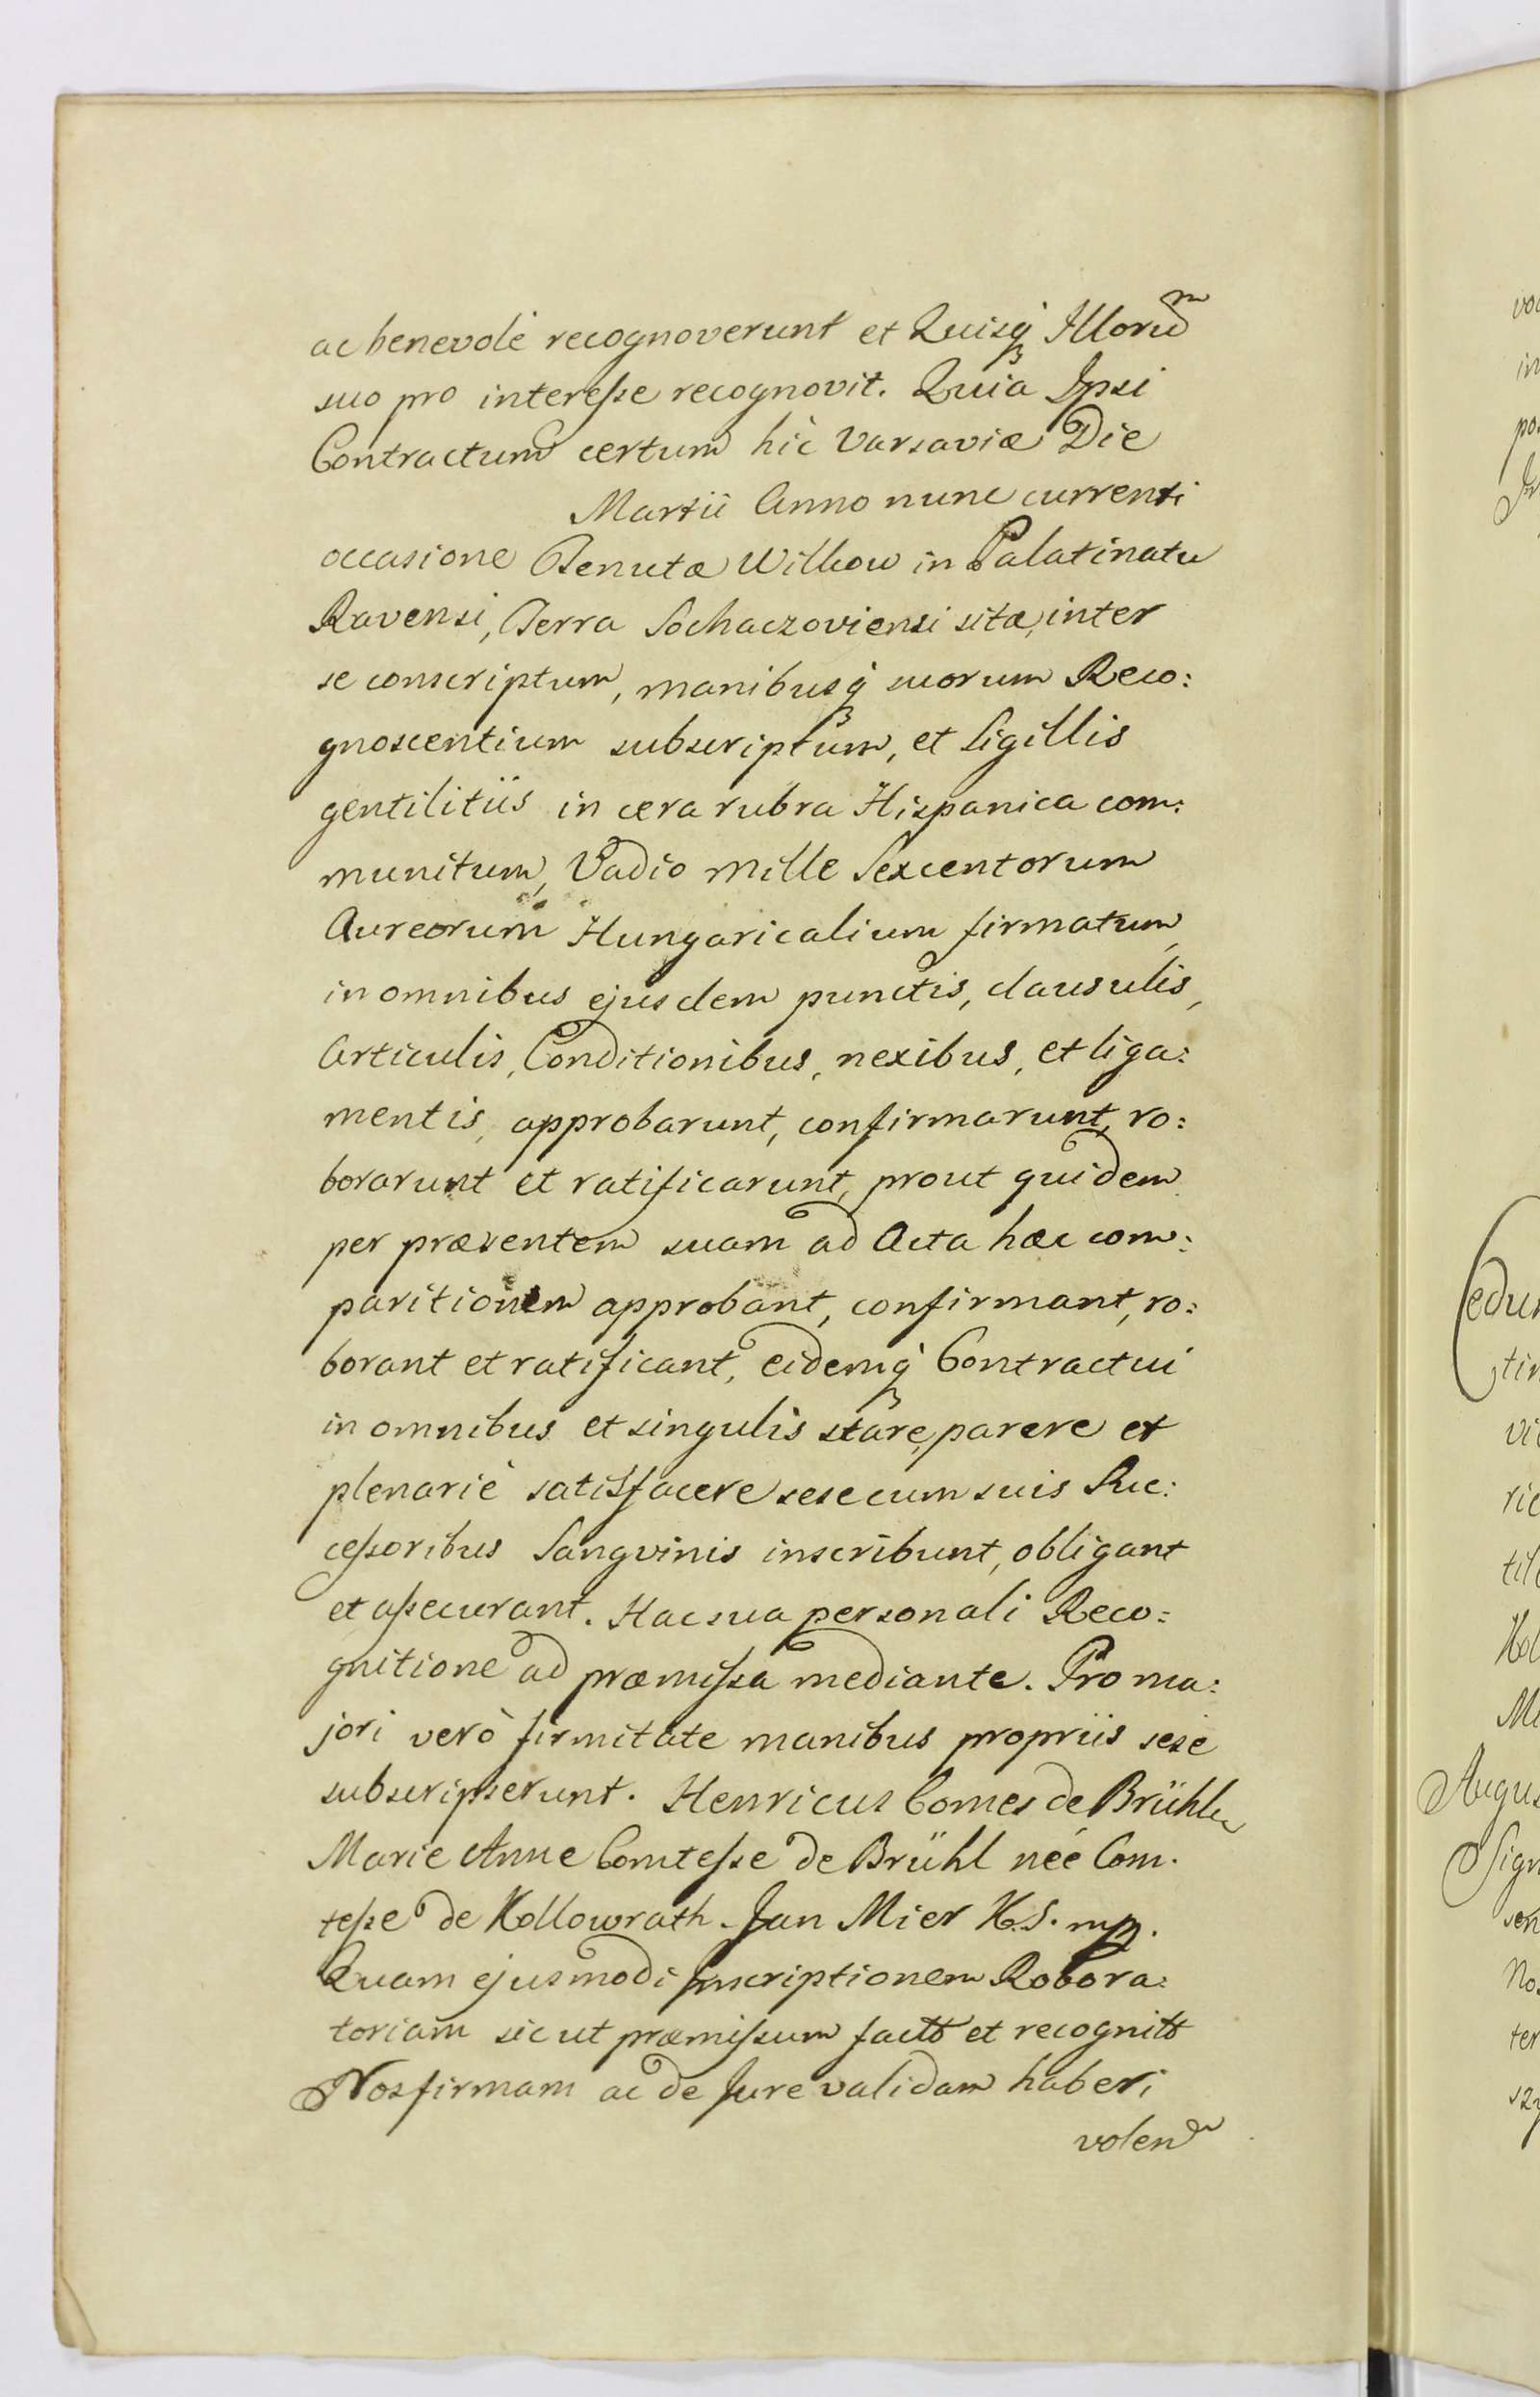 ac benevolè recognoverunt et Quisq́ Illoru͠m
suo pro interesse recognovit. Quia Ipsi
Contractum certum hic Varsaviæ Die
Martii Anno nunc currenti
occasione Tenutæ Wilkow in Palatinatu
Ravensi, Terra Sochaczoviensi sitæ, inter
se conscriptum, manibusq́ suorum Reco:
gnoscentium subscriptum, et Sigillis
gentilitiis in cera rubra Hispanica com:
munitum, Vadio mille Sexcentorum
Aureorum Hungaricalium firmatum,
in omnibus ejusdem punctis, clausulis,
Articulis, Conditionibus, nexibus, et liga:
mentis, approbarunt, confirmarunt, ro:
borarunt et ratificarunt, prout quidem
per præsentem suam ad Acta hæc com:
paritionem approbant, confirmant, ro:
borant et ratificant, eidemq́ Contractui
in omnibus et singulis stare, parere et
plenariè satisfacere sese cum suis Suc:
cessoribus Sangvinis inscribunt, obligant
et assecurant. Hac sua personali Reco:
gnitione ad præmissa mediante. Pro ma:
jori verò firmitate manibus propriis sese
subscripserunt. Henricus Comes de Brühl
Marie Anne Comtesse de Brühl née Com.
tesse de Kollowrath. Jan Mier K.S. mp.
Quam ejusmodi Inscriptionem Robora:
toriam sicut præmissum factt et recognitt
Nos firmam ac de Jure validam haberi
volen
voc
in
po
Cedun
tin
vi
ric
til
Kol
Mi
Augus
Sign
sen
No
ter
szy